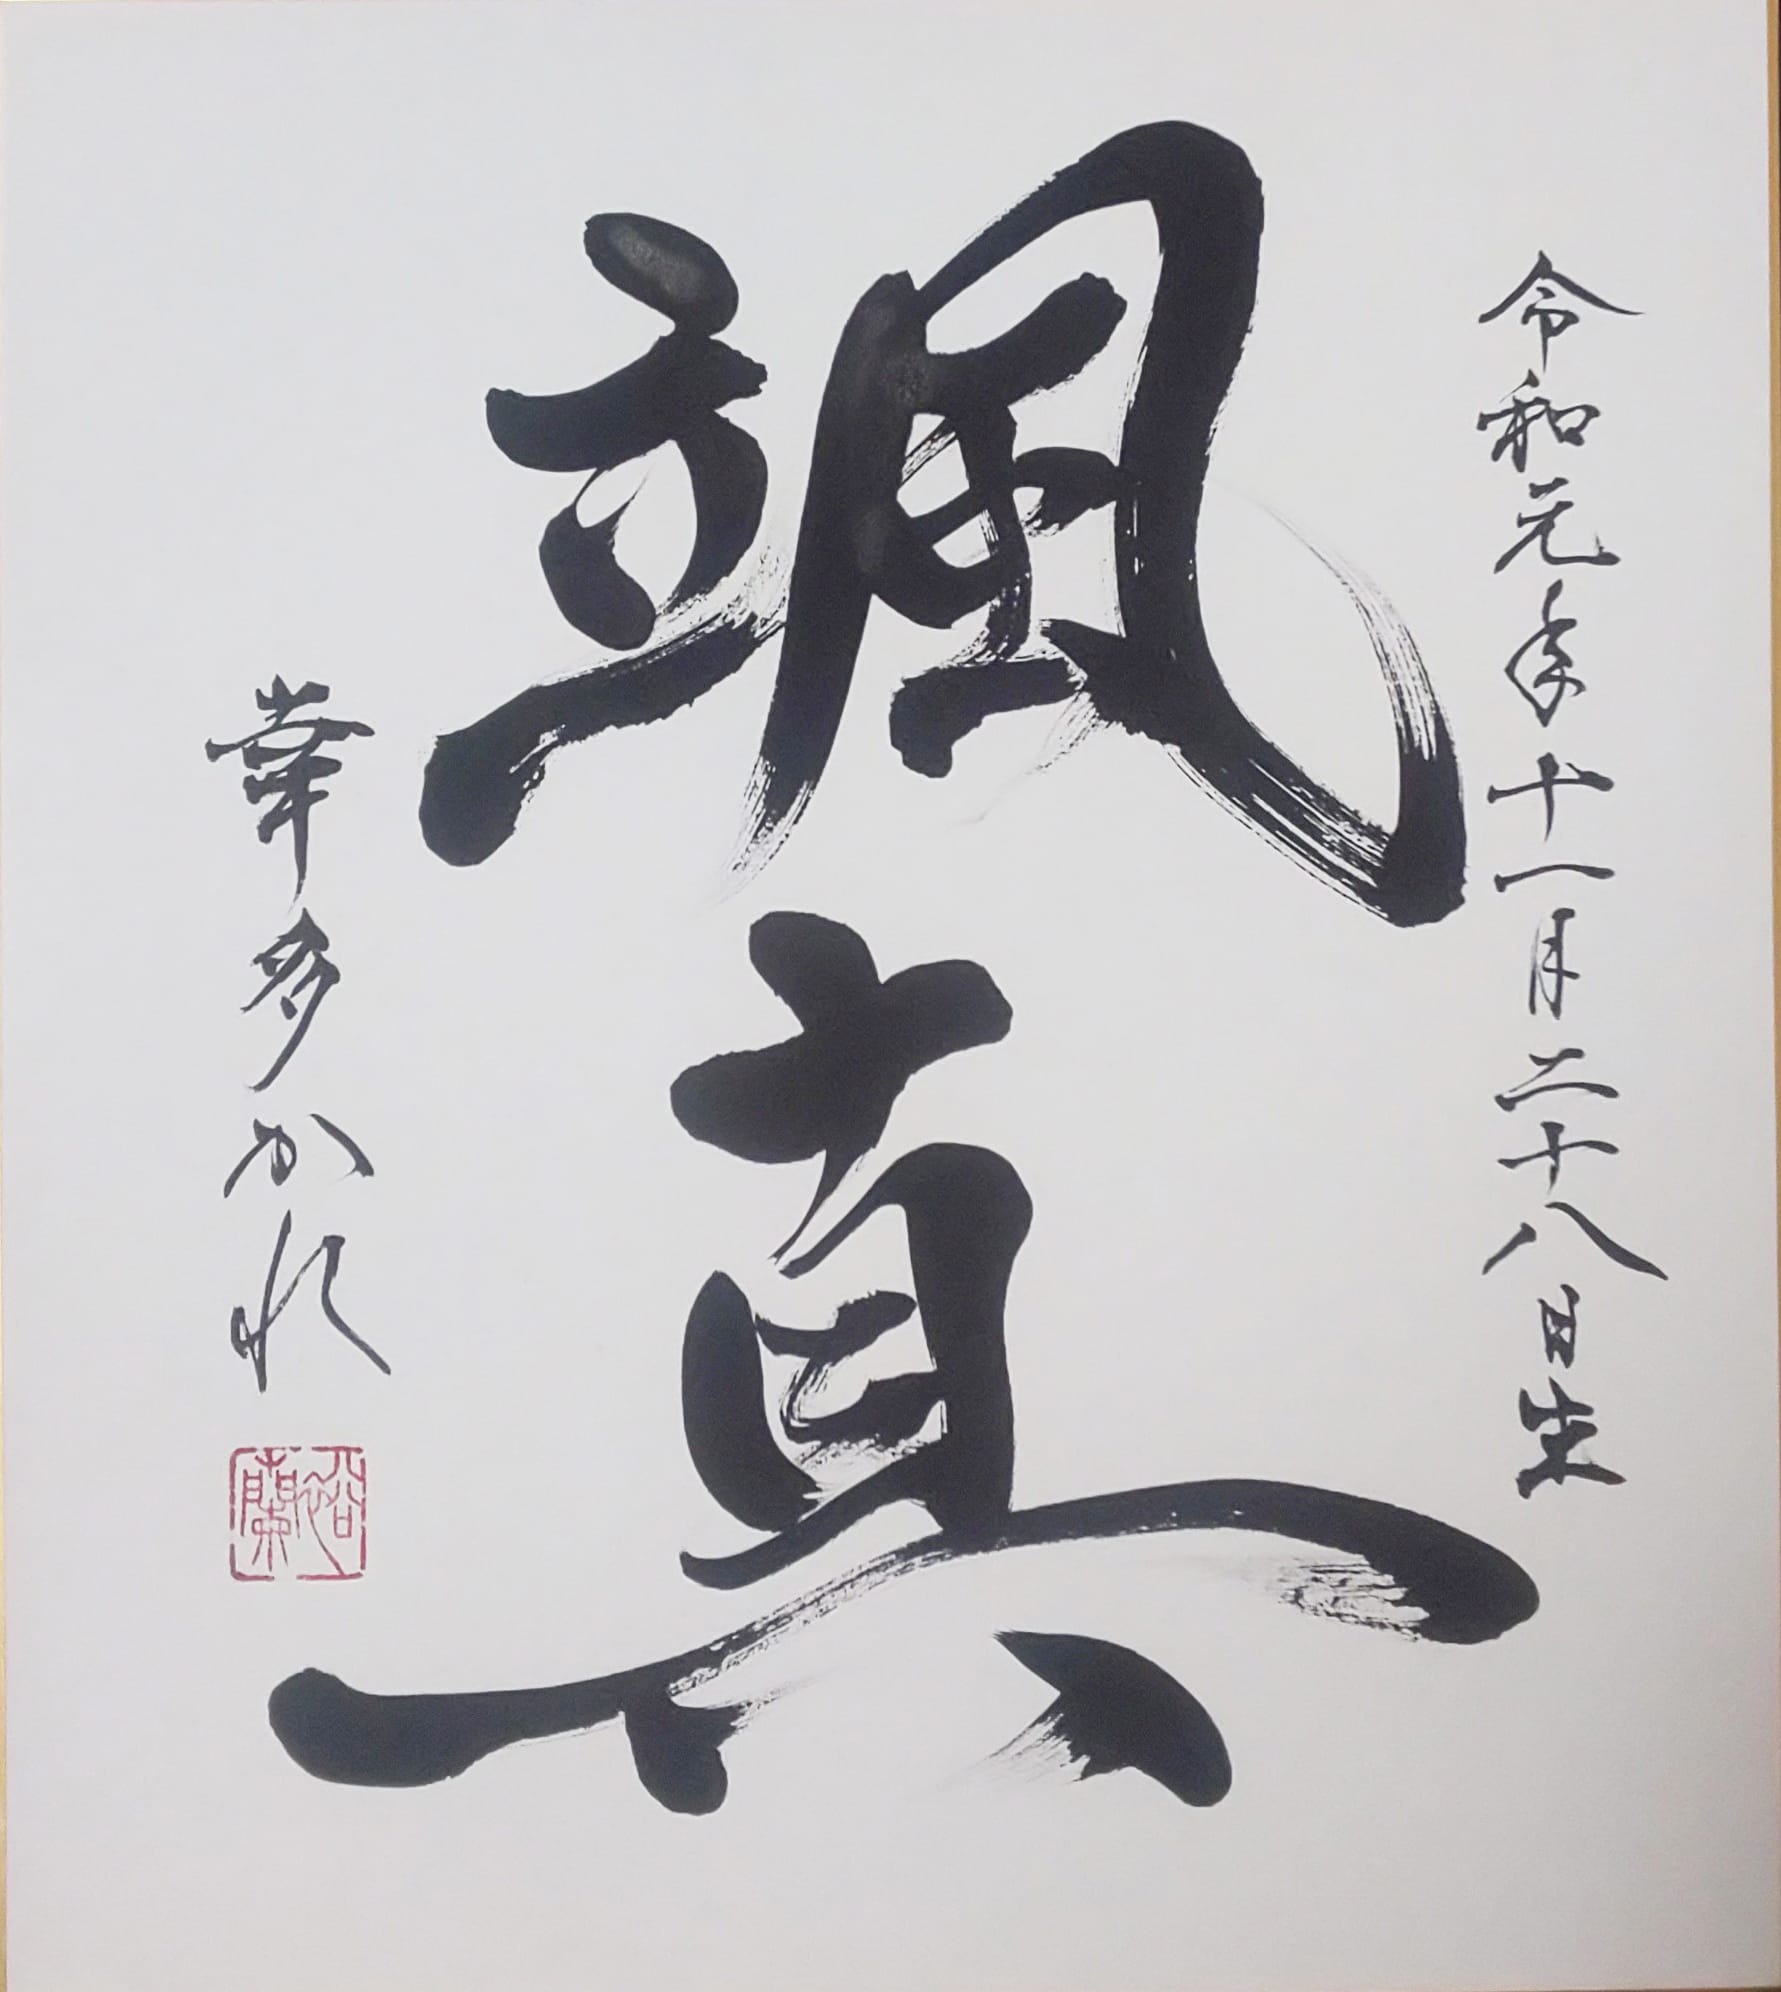 令和元年十一月二十八日生
颯真
幸多かれ
裕蘭